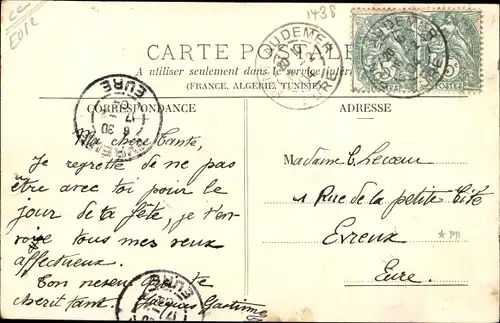 EURE
1438
CARTE POSTALE
A utiliser seulement dans le service intérieur
(FRANCE, ALGERIE, TUNISIE)
CORRESPONDANCE
ADRESSE
Ma chère Tante,
Je regrette de ne pas
être avec toi pour le
jour de ta fête, je t'en-
voie tous mes vœux
affectueux.
Ton neveu qui te
cherit tant. Jacques
Madame C. Lecoeur
1 Rue de la petite Cité
Evreux
Eure.
PB
AUDEMER
EURE
5c
POSTES
EURE
EURE